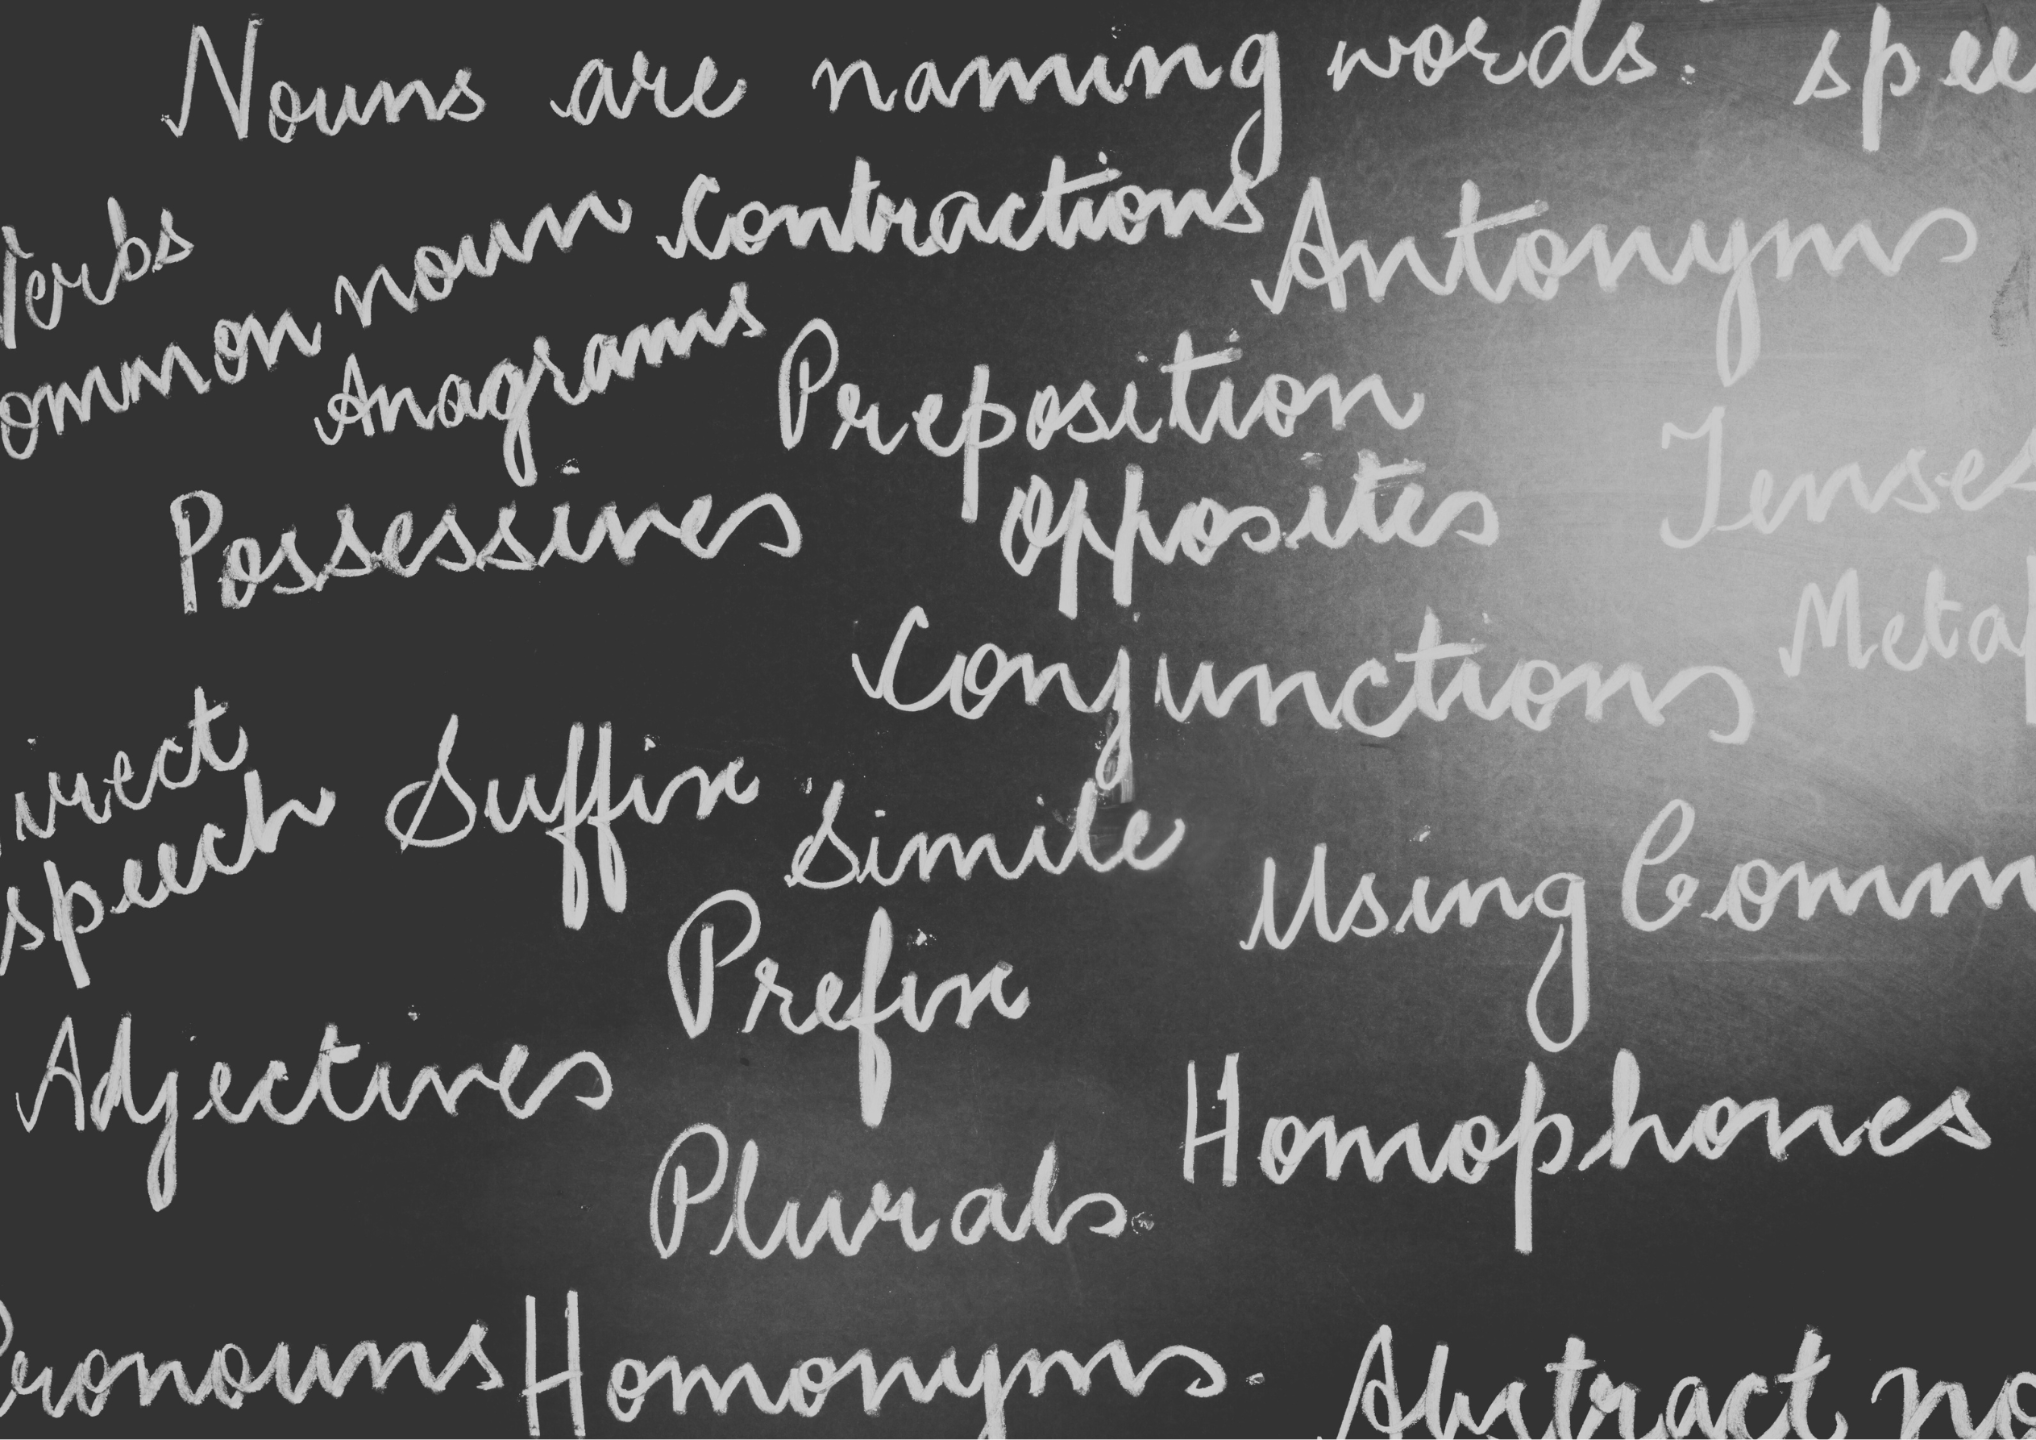 Nouns are naming words. spee
Verbs
ommon noun
Contractions
Antonyms
Anagrams
Preposition
Possessives
opposites
Tenses
Conjunctions
Metap
irect
speech
Suffix
Simile
Using Comm
Prefix
Adjectives
Homophones
Plurals.
Pronouns
Homonyms.
Abstract no